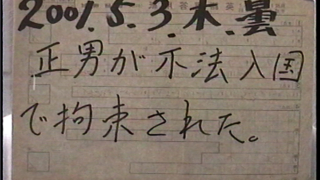 2001.5.3 木 曇
正男が不法入国
で拘束された。